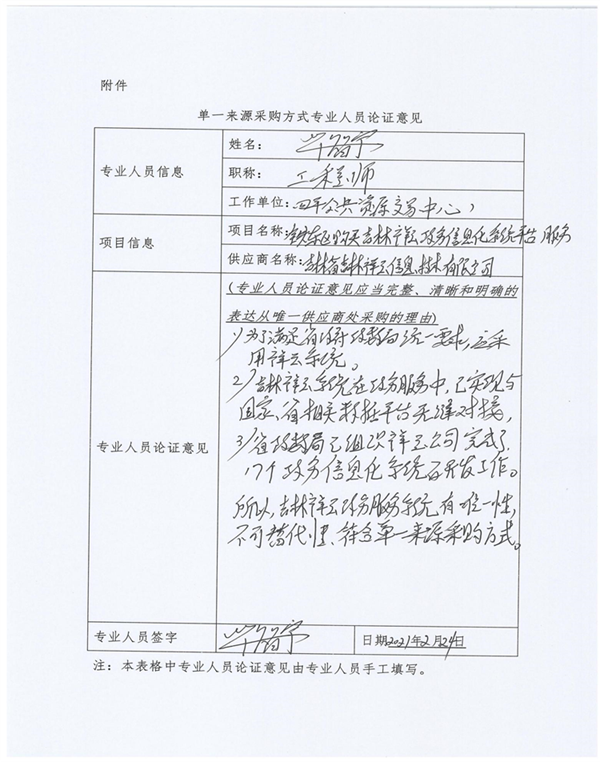 附件
单一来源采购方式专业人员论证意见
专业人员信息
姓名：
职称：工程师
工作单位：四平公共资源交易中心
项目信息
项目名称：铁东区购买吉林祥云政务信息化系统平台服务
供应商名称：吉林省吉林祥云信息技术有限公司
专业人员论证意见
（专业人员论证意见应当完整、清晰和明确的
表达从唯一供应商处采购的理由）
1）为了满足省政府政数局统一要求，应采
用祥云系统。
2）吉林祥云系统在政务服务中，已实现与
国家、省相关数据平台无缝对接，
3）省政数局已组织祥云公司完成了
17个政务信息化系统的开发工作。
所以，吉林祥云政务服务系统有唯一性，
不可替代性、符合单一来源采购方式。
专业人员签字
日期2021年2月24日
注：本表格中专业人员论证意见由专业人员手工填写。